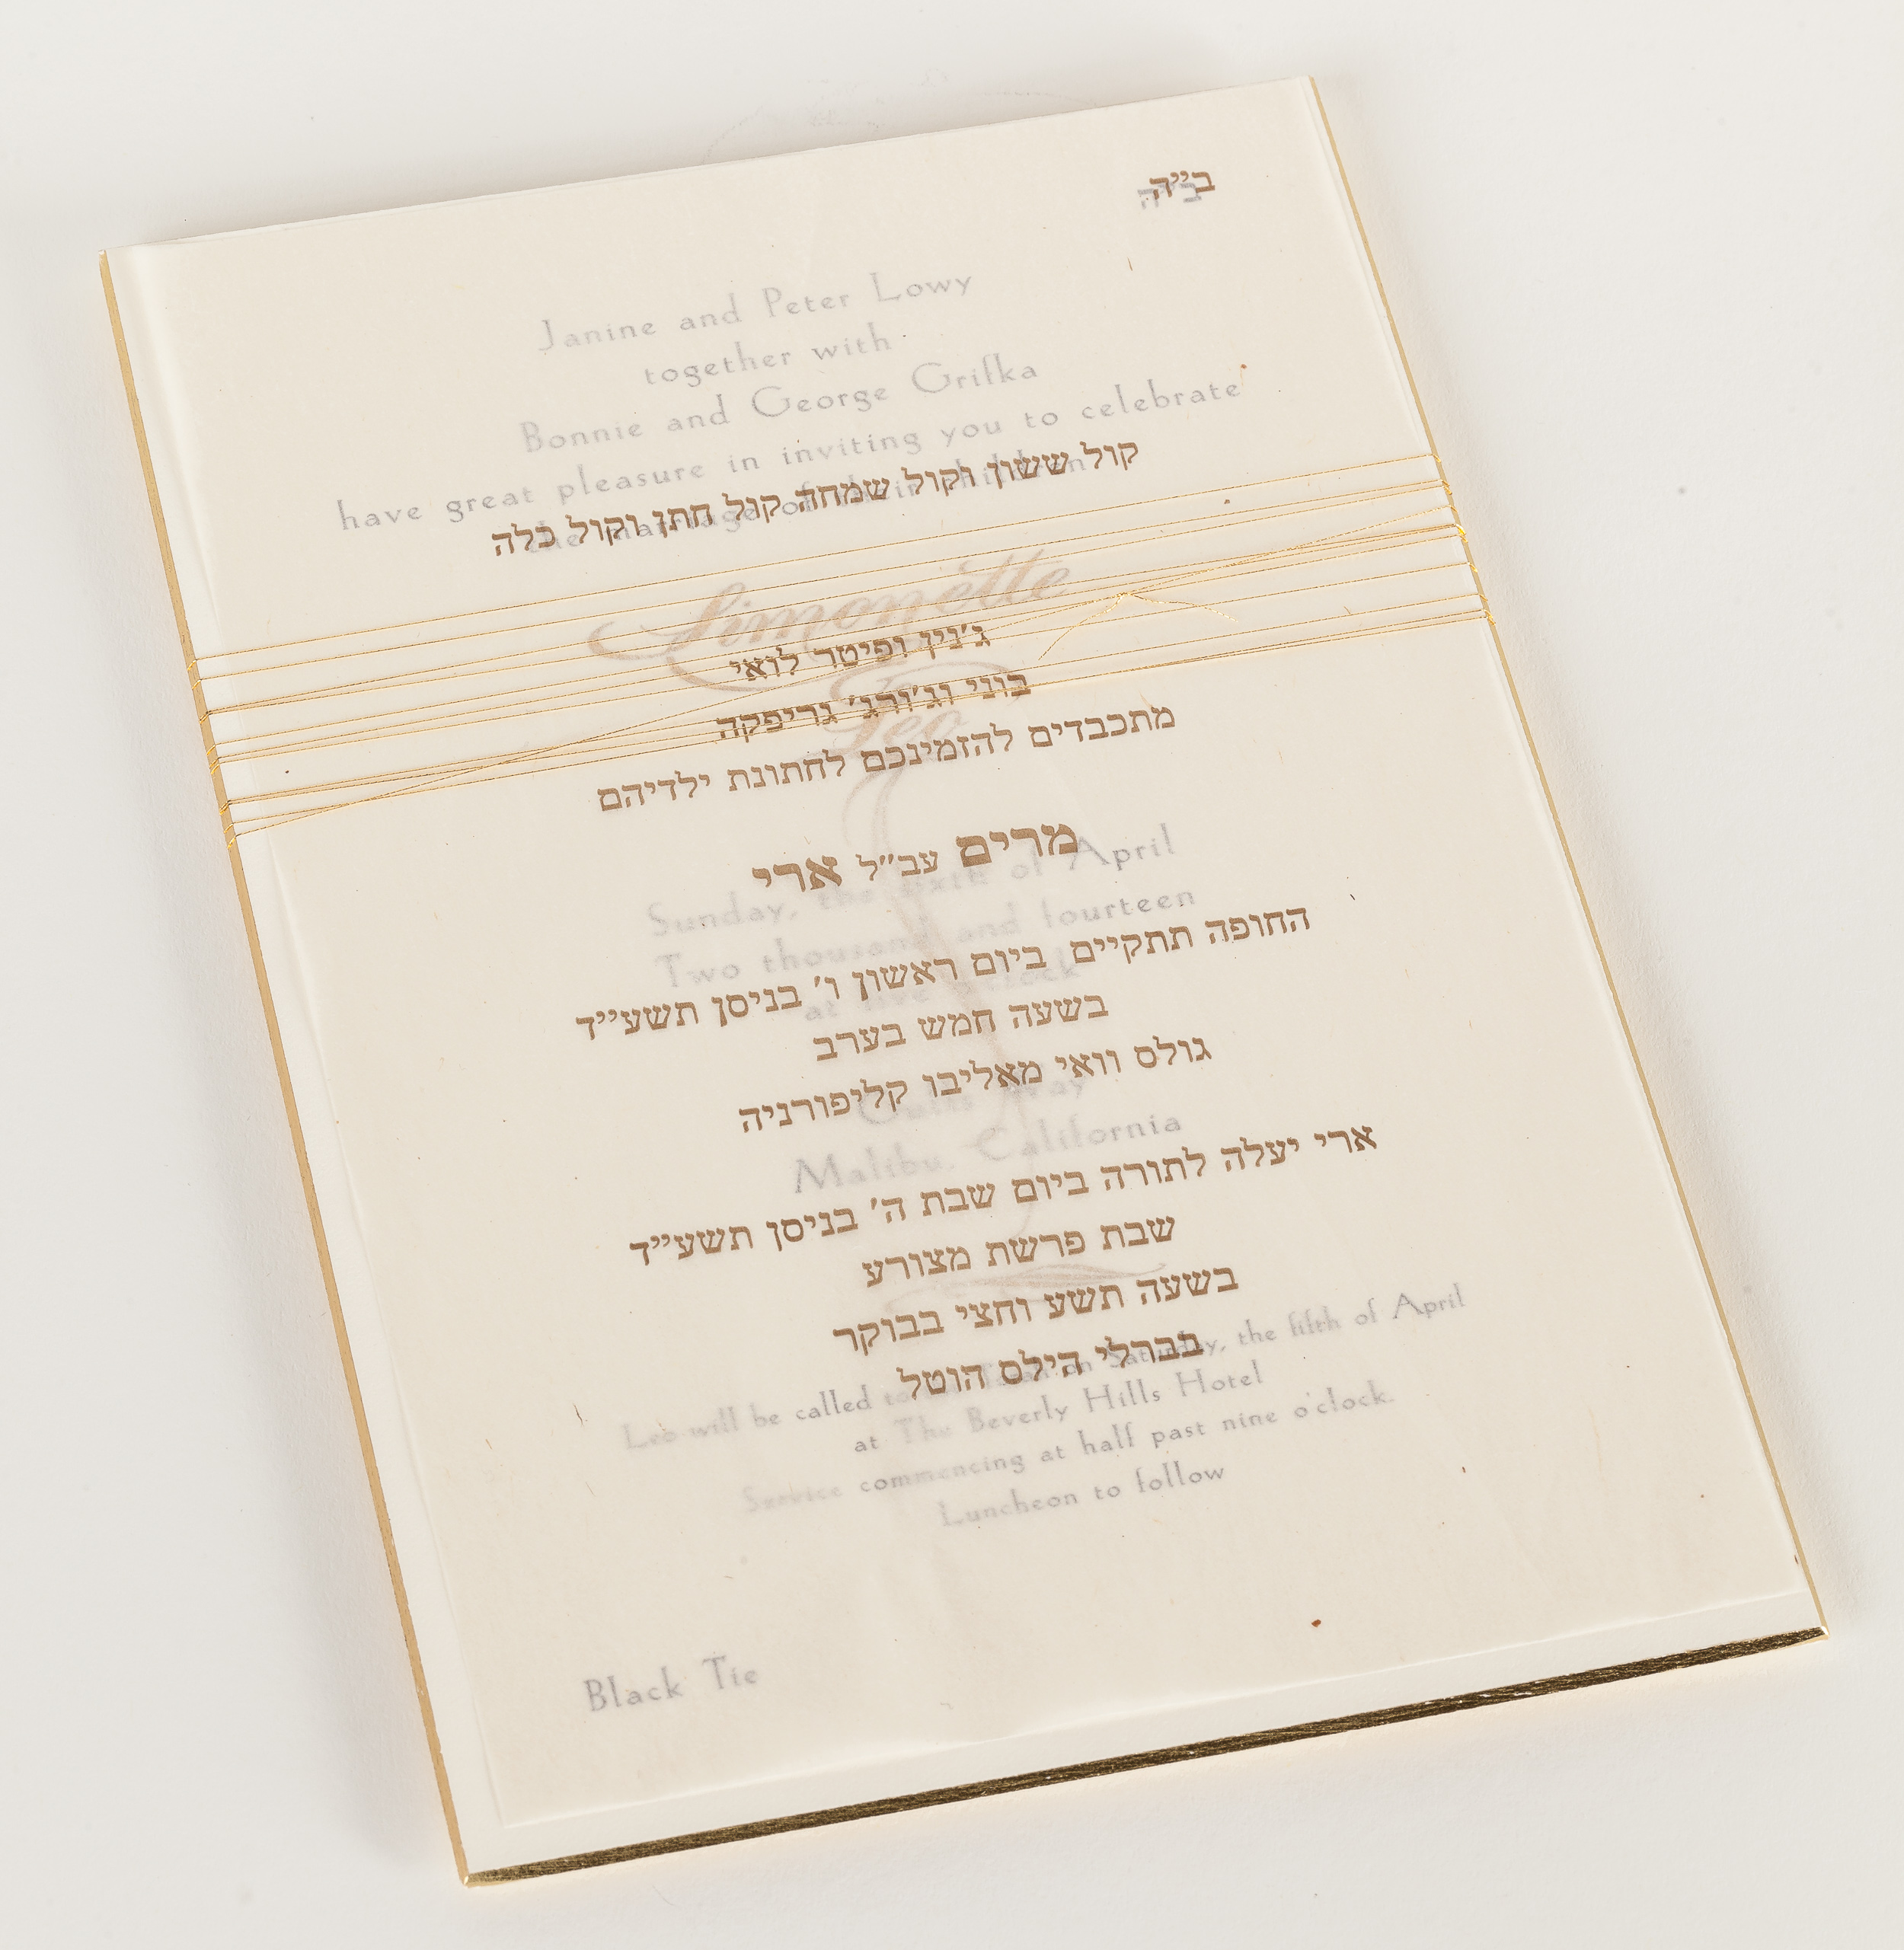 ב״ה
ב״ה
Janine and Peter Lowy
together with
Bonnie and George Grifka
have great pleasure in inviting you to celebrate
the marriage of their children
קול ששון וקול שמחה קול חתן וקול כלה
Simonette
&
Leo
ג׳נין ופיטר לואי
בוני וג׳ורג׳ גריפקה
מתכבדים להזמינכם לחתונת ילדיהם
מרים עב״ל ארי
Sunday, the sixth of April
Two thousand and fourteen
at five o'clock
החופה תתקיים ביום ראשון ו׳ בניסן תשע״ד
בשעה חמש בערב
גולס וואי מאליבו קליפורניה
Way
Malibu, California
ארי יעלה לתורה ביום שבת ה׳ בניסן תשע״ד
שבת פרשת מצורע
בשעה תשע וחצי בבוקר
בברלי הילס הוטל
Leo will be called to the Torah on Saturday, the fifth of April
at The Beverly Hills Hotel
Service commencing at half past nine o'clock.
Luncheon to follow
Black Tie